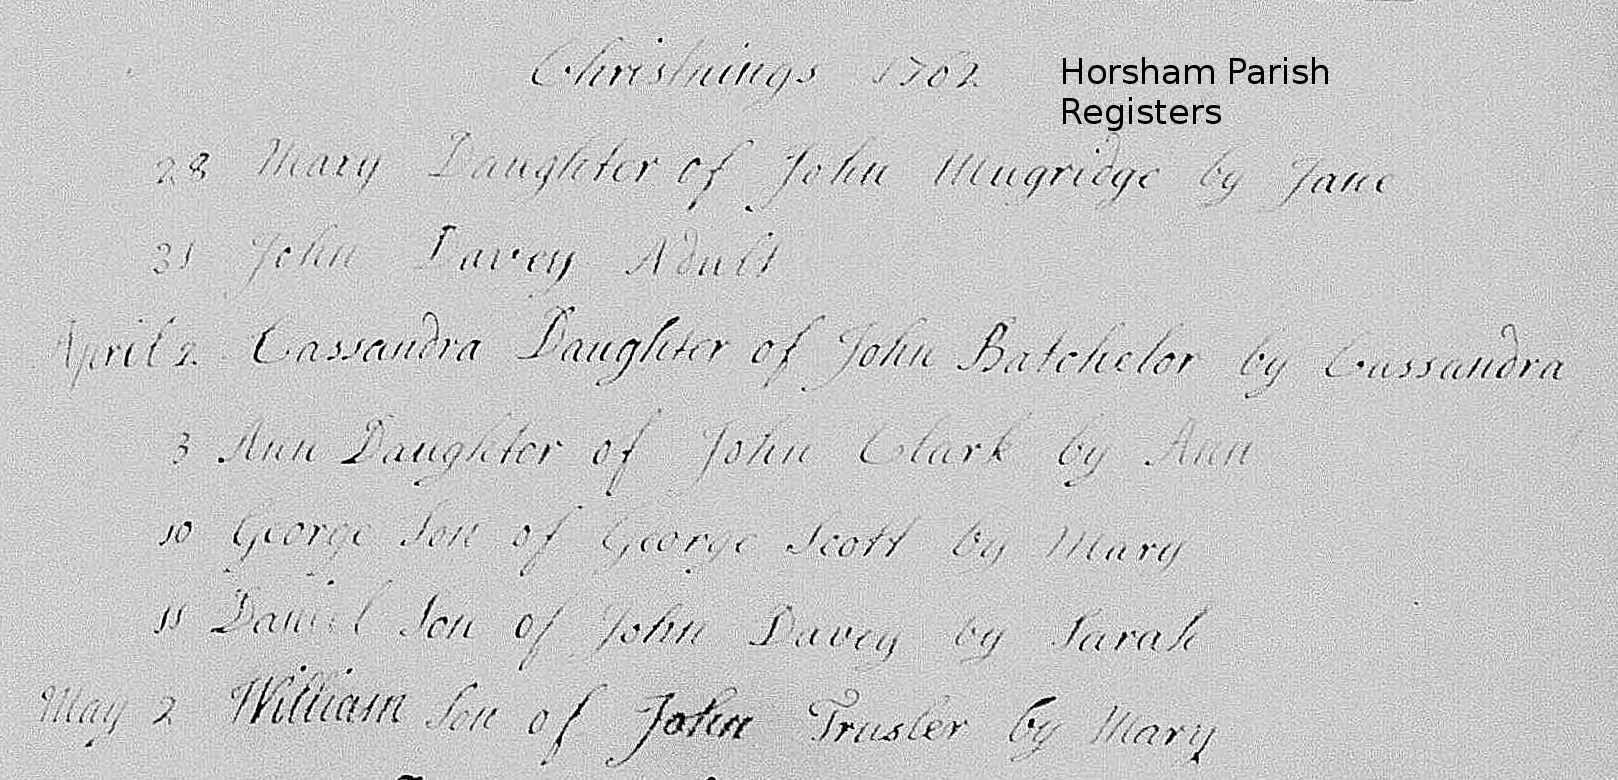 Christnings 1762
Horsham Parish
Registers
28 Mary Daughter of John Mugridge by Jane
31 John Davey Adult
April 2 Cassandra Daughter of John Batchelor by Cassandra
3 Ann Daughter of John Clark by Ann
10 George Son of George Scott by Mary
11 Daniel Son of John Davey by Sarah
May 2 William Son of John Trusler by Mary